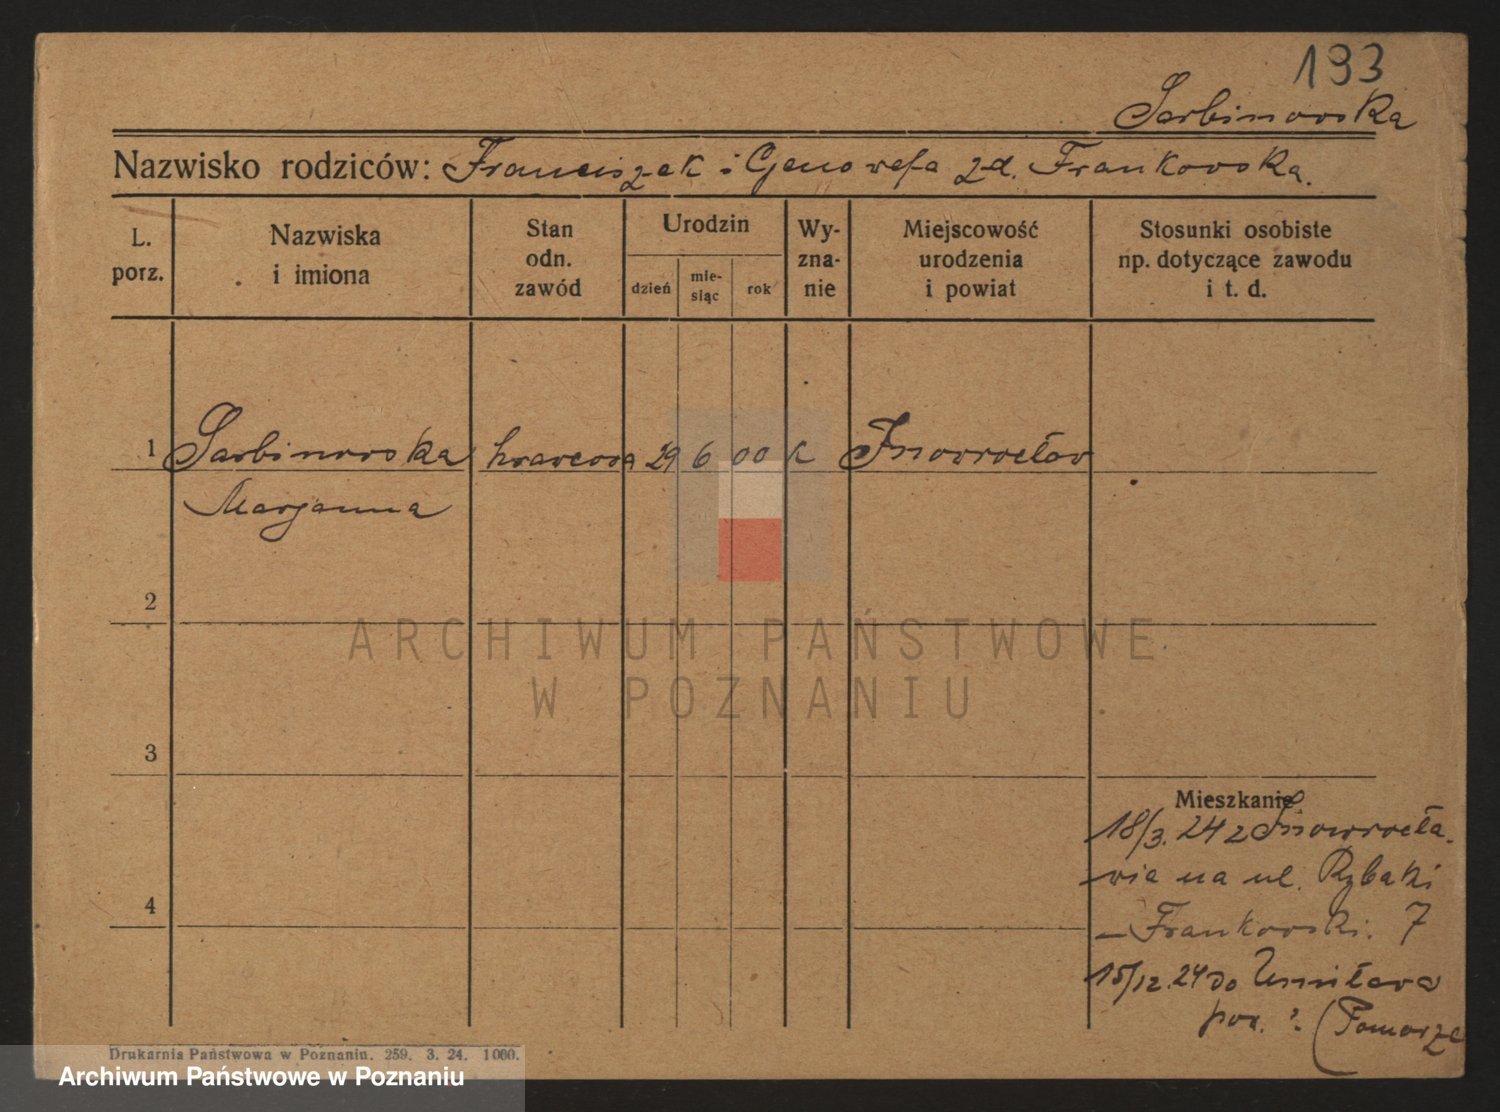 193
Sarbinowska
Nazwisko rodziców: Franciszek i Genowefa zd. Frankowska.
L. porz.
Nazwiska i imiona
Stan odn. zawód
Urodzin
dzień
mie-siąc
rok
Wy-zna-nie
Miejscowość urodzenia i powiat
Stosunki osobiste np. dotyczące zawodu i t. d.
1 Sarbinowska krawcowa 29 6 00 k Inowrocław
Marjanna
2
3
4
Mieszkanie
18/3. 24 z Inowrocła-
wia na ul. Rybaki
– Frankowski. 7
15/12. 24 do
pow. ?. (Pomorze
Drukarnia Państwowa w Poznaniu. 259. 3. 24. 1000.
ARCHIWUM PAŃSTWOWE
W POZNANIU
Archiwum Państwowe w Poznaniu